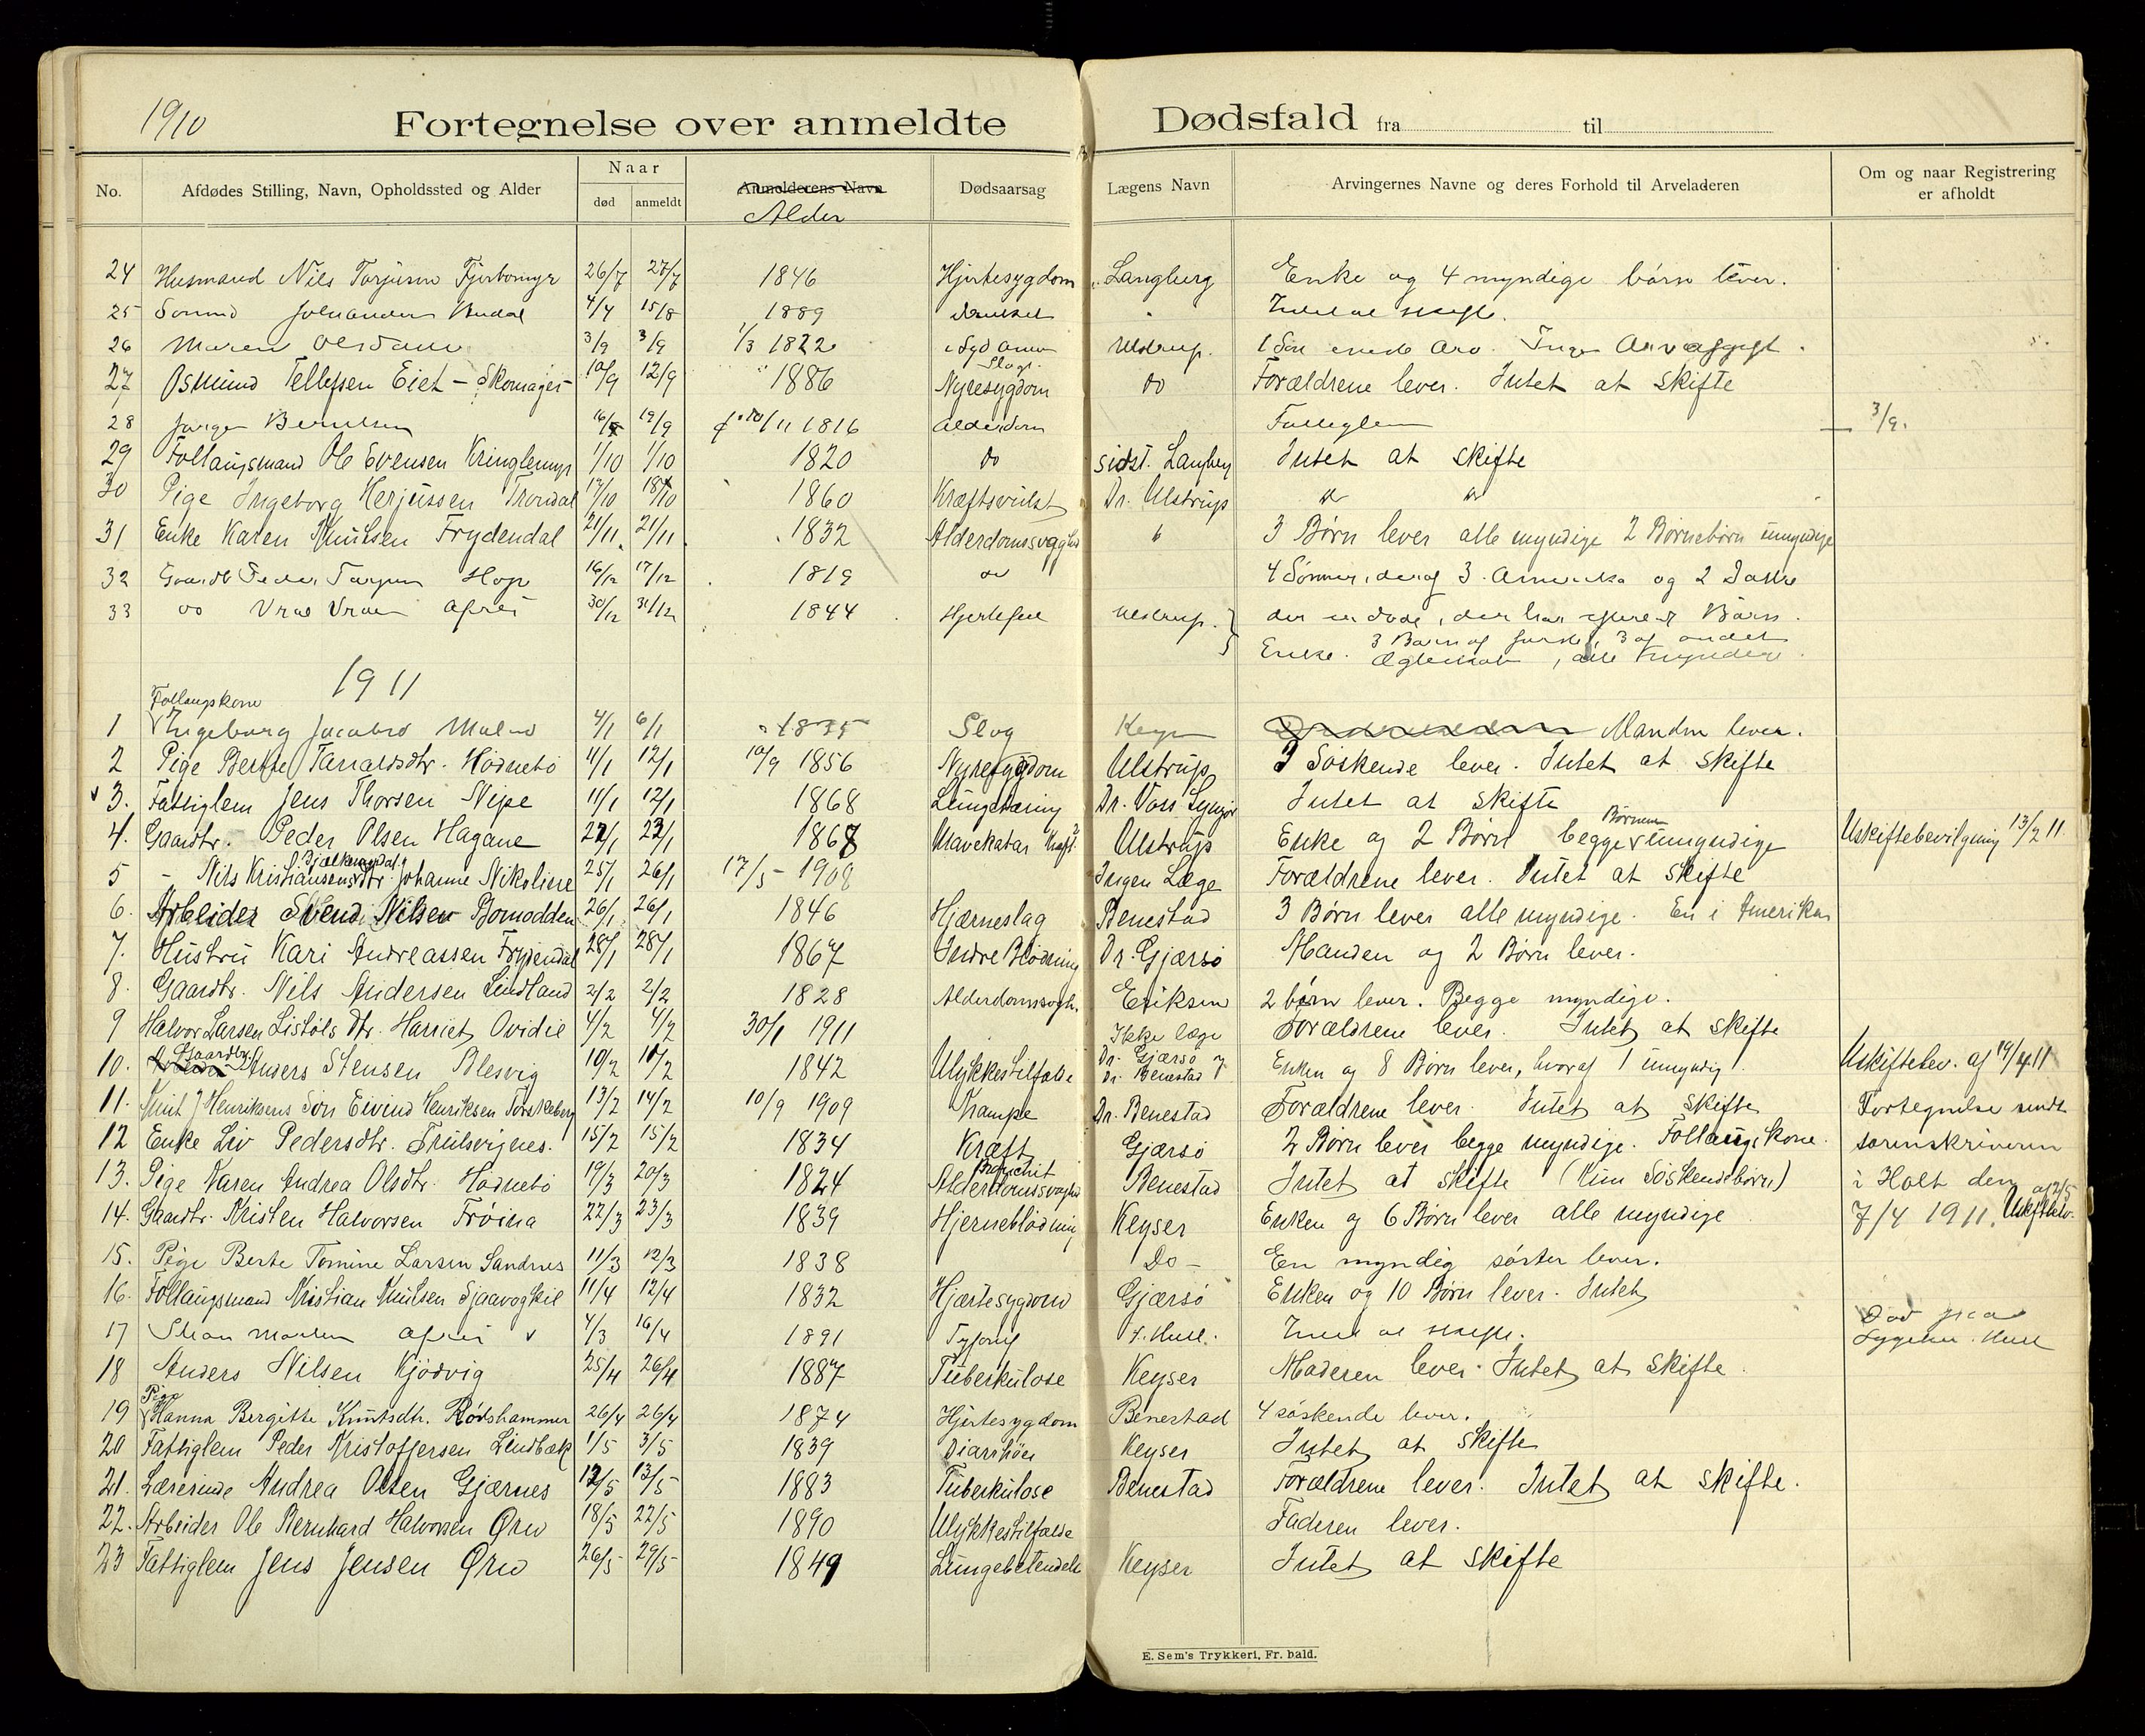 1910
Fortegnelse over anmeldte Dødsfald fra til
No. Afdødes Stilling, Navn, Opholdssted og Alder Naar død anmeldt Anmelderens Navn Alder Dødsaarsag Lægens Navn Arvingernes Navne og deres Forhold til Arveladeren Om og naar Registrering er afholdt
24 Husmand Nils Torjusen 26/7 27/7 1846 Hjertesygdom Langberg Enke og 4 myndige børn lever.
25 4/4 15/8 1889 Druknet Intet at skifte.
26 Maren 3/9 3/9 1/3 1822 Ulstrup. 1 Søn
27 Osmund Tellefsen Eiet - Skomager 10/9 12/9 1886 Nyresygdom do Forældrene lever. Intet at skifte
28 Jørgen Berntsen 19/9 1816 Alderdom Fattiglem 3/9.
29 Follaugsmand Ole Evensen Kringlemyr 1/10 1/10 1820 do sidst. Langberg Intet at skifte
30 Pige Ingeborg Herjussen Trondal 17/10 18/10 1860 Kræftsvulst Dr. Ulstrup
31 Enke Karen Knutsen Frydendal 21/11 21/11 1832 Alderdomssvaghed 3 Børn lever alle myndige 2 Børnebørn umyndige
32 Gaardb Peder Hope 16/12 17/12 1819 do 4 Sønner, deraf 3 Amerika og 2 Døtre
33 do 30/12 31/12 1844 Hjertefeil Ulstrup. der er døde, der har efterladt Børn.
Enke. 3 Børn af første, 3 af andet
Ægteskab, alle
1911
Follaugskone
1 Ingeborg Jacobsd 4/1 6/1 1835 Slag Keyser Manden lever.
2 Pige Berthe Tarraldsdtr. Hødnebø 11/1 12/1 10/9 1856 Nyresygdom Ulstrup 3 Søskende lever. Intet at skifte
3. Fattiglem Jens Thorsen Nipe 11/1 12/1 1868 Lungetæring Dr. Voss Lyngør Intet at skifte
4. Gaardbr. Peder Olsen Hagane 22/1 23/1 1868 Mavekatar Ulstrup Enke og 2 Børn begge Børnene umyndige Uskiftebevilgning 13/2 11
5 - Nils Kristiansens dtr. Johanne Nikoline 25/1 26/1 17/5 - 1908 Ingen Læge Forældrene lever. Intet at skifte
6. Arbeider Svend Nilsen Bomodden 26/1 26/1 1846 Hjærneslag Benestad 3 Børn lever alle myndige. En i Amerika
7. Hustru Kari Andreassen Frydendal 28/1 28/1 1867 Indre Blødning Dr. Gjærsø Manden og 2 Børn lever.
8. Gaardbr. Nils Andersen Lindland 2/2 2/2 1828 Alderdomssvagh. Eriksen 2 børn lever. Begge myndige.
9 Halvor Larsen Lisløls dtr. Harriet Ovidie 4/2 4/2 30/1 1911 Ikke læge Forældrene lever. Intet at skifte
10. Gaardbr. Anders Stensen Blesvig 10/2 10/2 1842 Ulykkestilfælde Dr. Gjærsø Dr. Benestad Enken og 8 Børn lever, hvoraf 1 umyndig. Uskiftebev. af 19/4 11
11. Henriksens Søn Eivind Henriksen Torskeberg 13/2 14/2 10/9 1909 Krampe Dr. Benestad Forældrene lever. Intet at skifte Fortegnelse sendt
12 Enke Liv Pedersdtr. Trulsvignes. 15/2 15/2 1834 Kræft Gjærsø 2 Børn lever begge myndige. Follaugskone. sorenskriveren
13. Pige Karen Andrea Olsdtr. Hødnebø 19/3 20/3 1824 Bronchit Alderdomssvaghed Benestad Intet at skifte (Kun Søskendebørn) i Holt den
14. Gaardbr. Kristen Halvorsen Frøina 22/3 23/3 1839 Hjerneblødning Keyser Enken og 6 Børn lever alle myndige 7/4 1911. Uskiftebev. af 2/5
15. Pige Berte Tomine Larsen Sandnes 11/3 12/3 1838 Do - En myndig søster lever.
16. Follaugsmand Kristian Knutsen Sjaavogkil 11/4 12/4 1832 Hjærtesygdom Gjærsø Enken og 10 Børn lever. Intet
17 4/3 16/4 1891 Intet at skifte. Død paa
18 Anders Nilsen Kjødvig 25/4 26/4 1887 Tuberkulose Keyser Moderen lever. Intet at skifte.
19 Pige Hanna Bergitte Knutsdtr. Rødshammer 26/4 26/4 1874 Hjertesygdom Benestad 4 søskende lever.
20 Fattiglem Peder Kristoffersen Lindbæk 1/5 3/5 1839 Diarrhöer Keyser Intet at skifte
21. Lærerinde Andrea Olsen Gjærnes 12/5 13/5 1883 Tuberkulose Benestad Forældrene lever. Intet at skifte.
22. Arbeider Ole Bernhard Halvorsen Ørw 18/5 22/5 1890 Ulykkestilfælde Faderen lever.
23 Fattiglem Jens Jensen Ørw 26/5 29/5 1849 Lungebetendelse Keyser Intet at skifte
E. Sem's Trykkeri, Fr. hald.